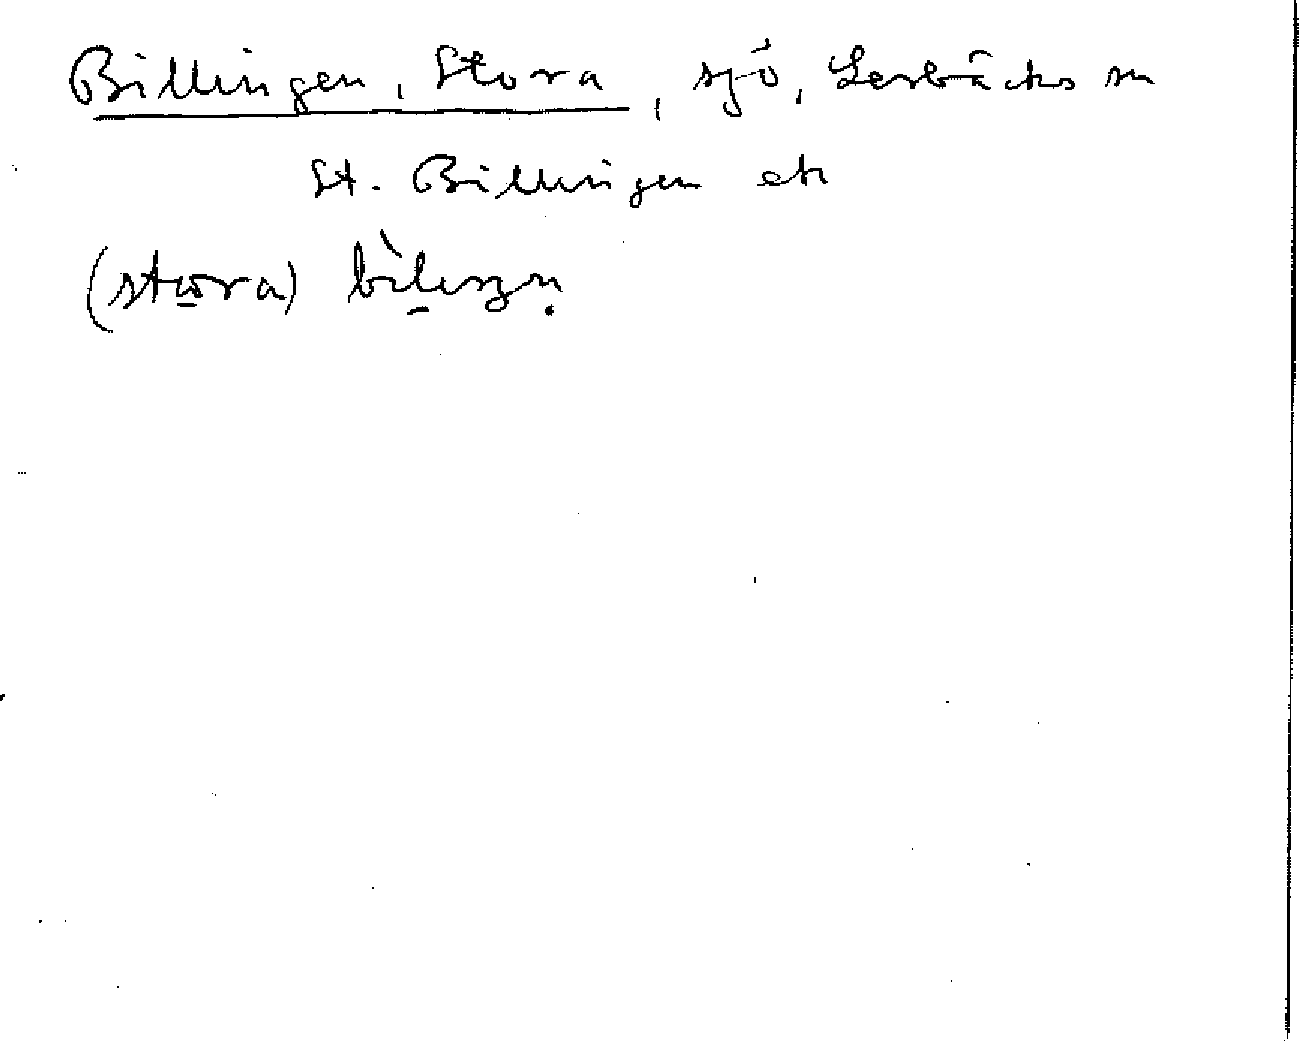 Billingen, Stora, sjö, Lerbäcks sn
St. Billingen ek
(stωra) bìleŋən̥